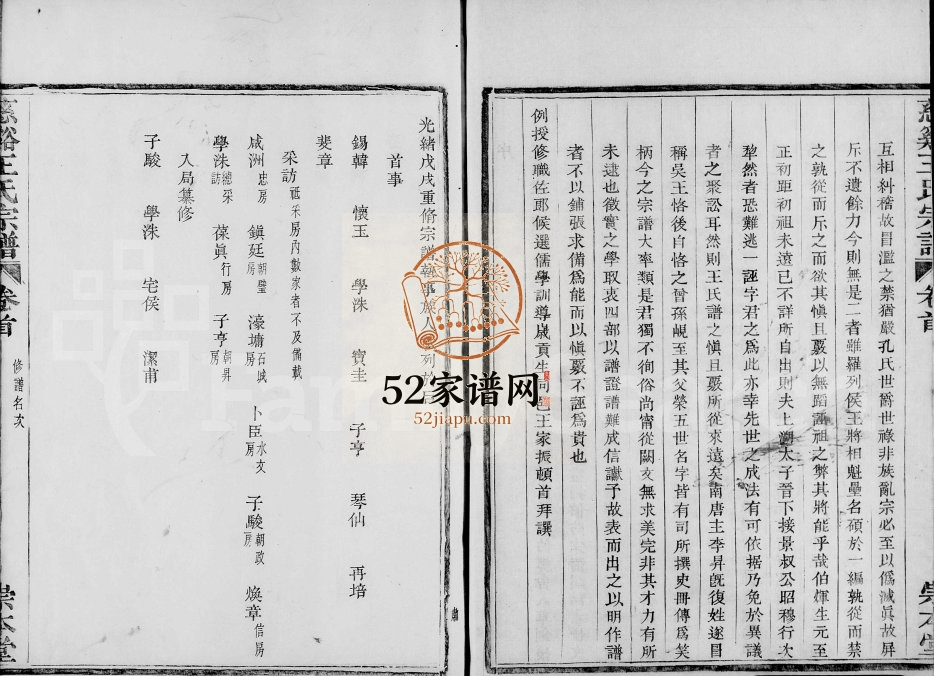 慈谿王氏宗譜 卷首 崇本堂
互相糾稽故冒濫之禁猶嚴孔氏世爵世祿非族亂宗必至以僞滅眞故屏
斥不遺餘力今則無是二者雖羅列侯王將相魁壘名碩於一編孰從而禁
之孰從而斥之而欲其愼且覈以無蹈誣祖之弊其將能乎哉伯煇生元至
正初距初祖未遠已不詳所自出則夫上溯太子晉下接景叔公昭穆行次
犂然者恐難逃一誣字君之爲此亦幸先世之成法有可依据乃免於異議
者之聚訟耳然則王氏譜之愼且覈所從來遠矣南唐主李昇旣復姓遂冒
稱吳王恪後自恪之曾孫峴至其父榮五世名字皆有司所撰史冊傳爲笑
柄今之宗譜大率類是君獨不徇俗尚甯從闕文無求美完非其才力有所
未逮也徵實之學取衷四部以譜證譜難成信讞予故表而出之以明作譜
者不以鋪張求備爲能而以愼覈不誣爲貴也
例授修職佐郎候選儒學訓導歲貢生同邑王家振頓首拜譔
慈谿王氏宗譜 卷首 修譜名次 崇本堂
光緒戊戌重脩宗譜執事族人
首事
錫韓 懷玉 學洙 寊圭 子亨 琴仙 再培
斐章
采訪 祗采房內數家者不及備載
咸洲忠房 鎭廷朝璧房 濠墉石城房 卜臣水文房 子駿朝政房 煥章信房
學洙總采訪 葆眞行房 子亨朝昇房
入局纂修
子駿 學洙 宅侯 潔甫
52家谱网
52jiapu.com